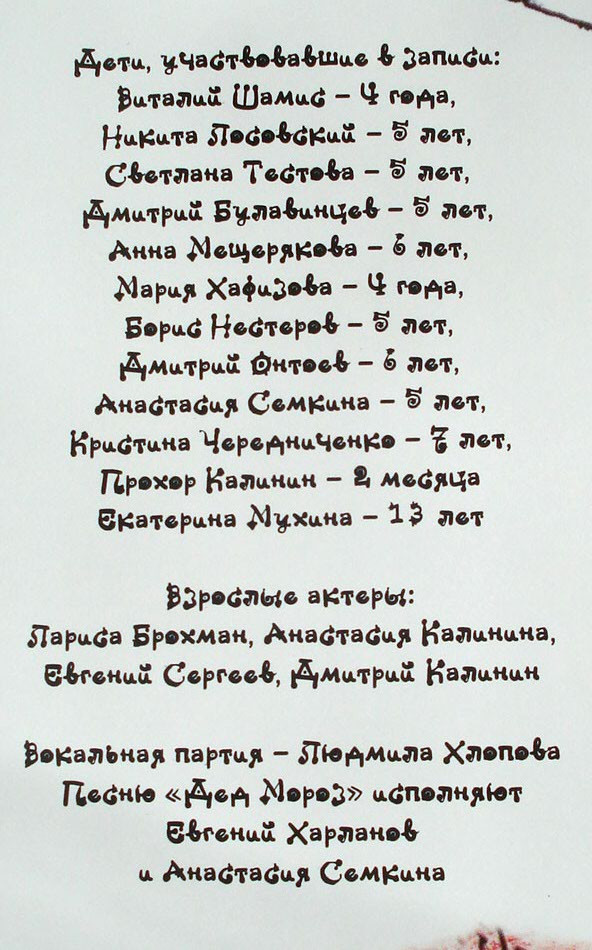 Дети, участвовавшие в записи:
Виталий Шамис – 4 года,
Никита Лосовский – 5 лет,
Светлана Тестова – 5 лет,
Дмитрий Булавинцев – 5 лет,
Анна Мещерякова – 6 лет,
Мария Хафизова – 4 года,
Борис Нестеров – 5 лет,
Дмитрий Онтоев – 6 лет,
Анастасия Семкина – 5 лет,
Кристина Чередниченко – 7 лет,
Прохор Калинин – 2 месяца
Екатерина Мухина – 13 лет
Взрослые актеры:
Лариса Брохман, Анастасия Калинина,
Евгений Сергеев, Дмитрий Калинин
Вокальная партия – Людмила Хлопова
Песню «Дед Мороз» исполняют
Евгений Харланов
и Анастасия Семкина